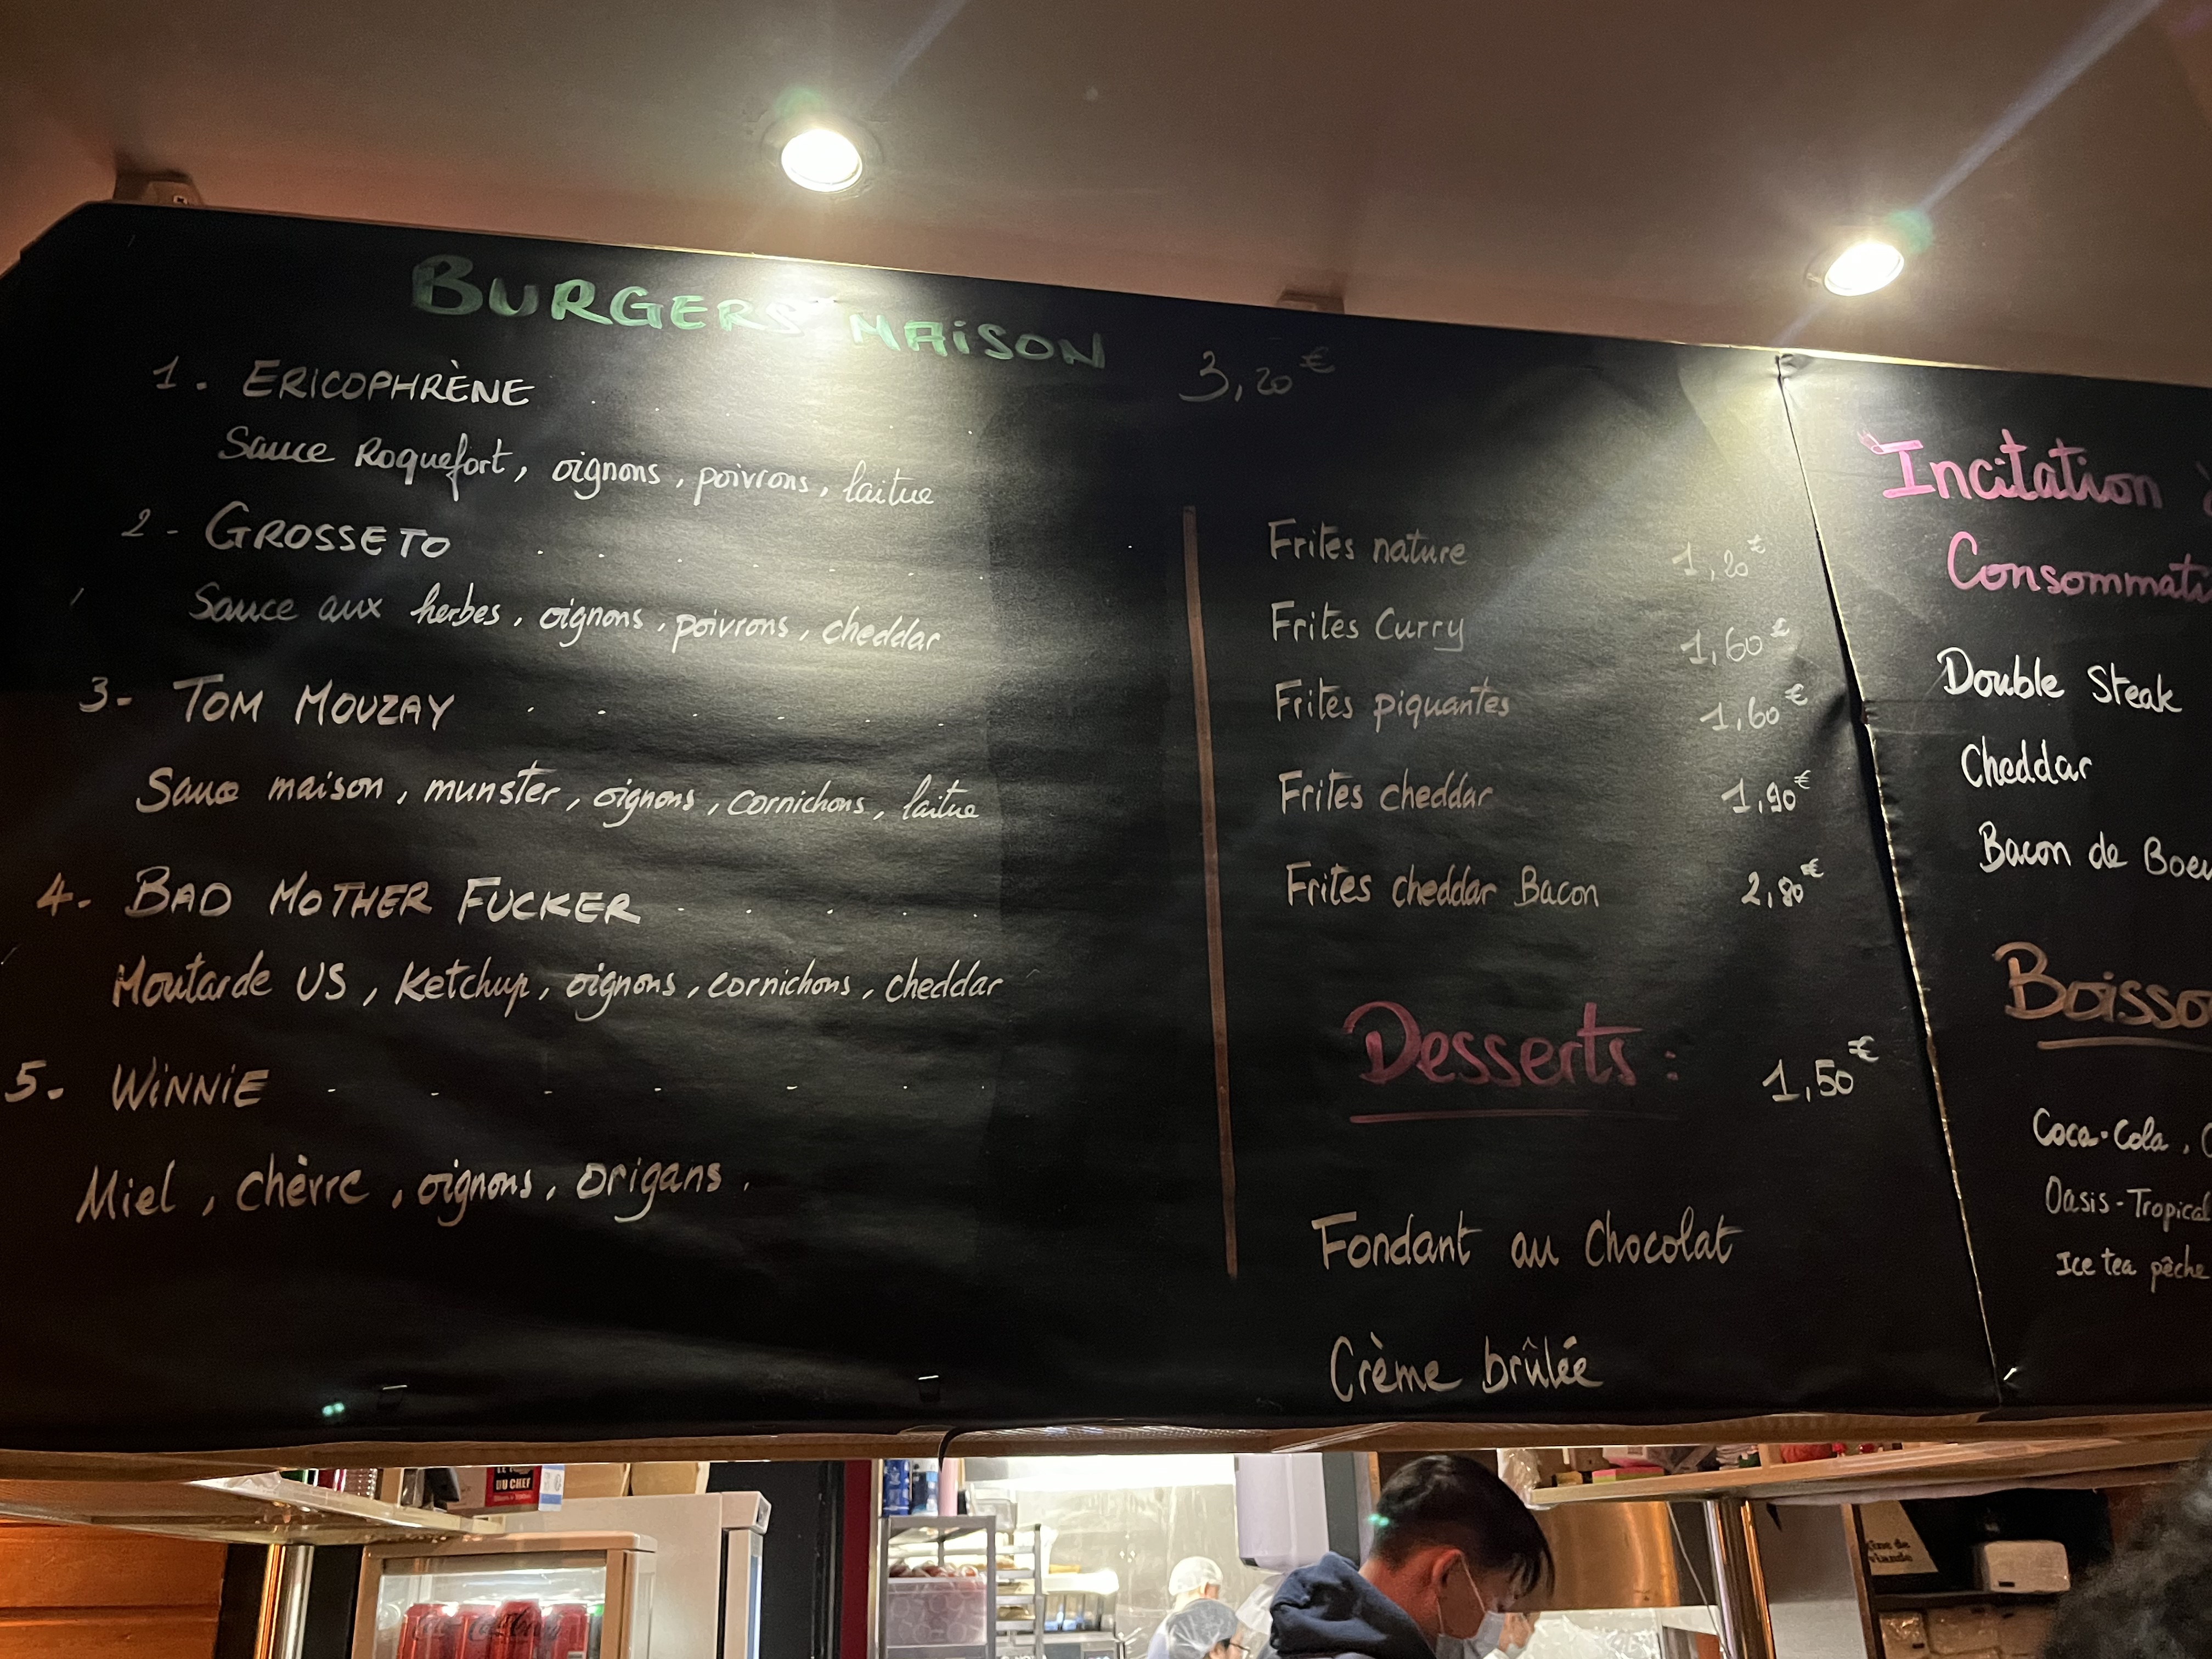 BURGERS MAISON
3,20€
1. ERICOPHRÈNE
Sauce Roquefort, oignons, poivrons, laitue
2 - GROSSETO
Sauce aux herbes, oignons, poivrons, cheddar
3- TOM MOUZAY
Sauce maison, munster, oignons, cornichons, laitue
4. BAD MOTHER FUCKER
Moutarde US, Ketchup, oignons, cornichons, cheddar
5. WINNIE
Miel, chèvre, oignons, origans.
Frites nature 1,20€
Frites Curry 1,60€
Frites piquantes 1,60€
Frites cheddar 1,90€
Frites cheddar Bacon 2,80€
Desserts : 1,50€
Fondant au Chocolat
Crème brûlée
Incitation
Double Steak
Cheddar
Bacon de
Coca-Cola,
Oasis-Tropical
Ice tea pêche
DU CHEF